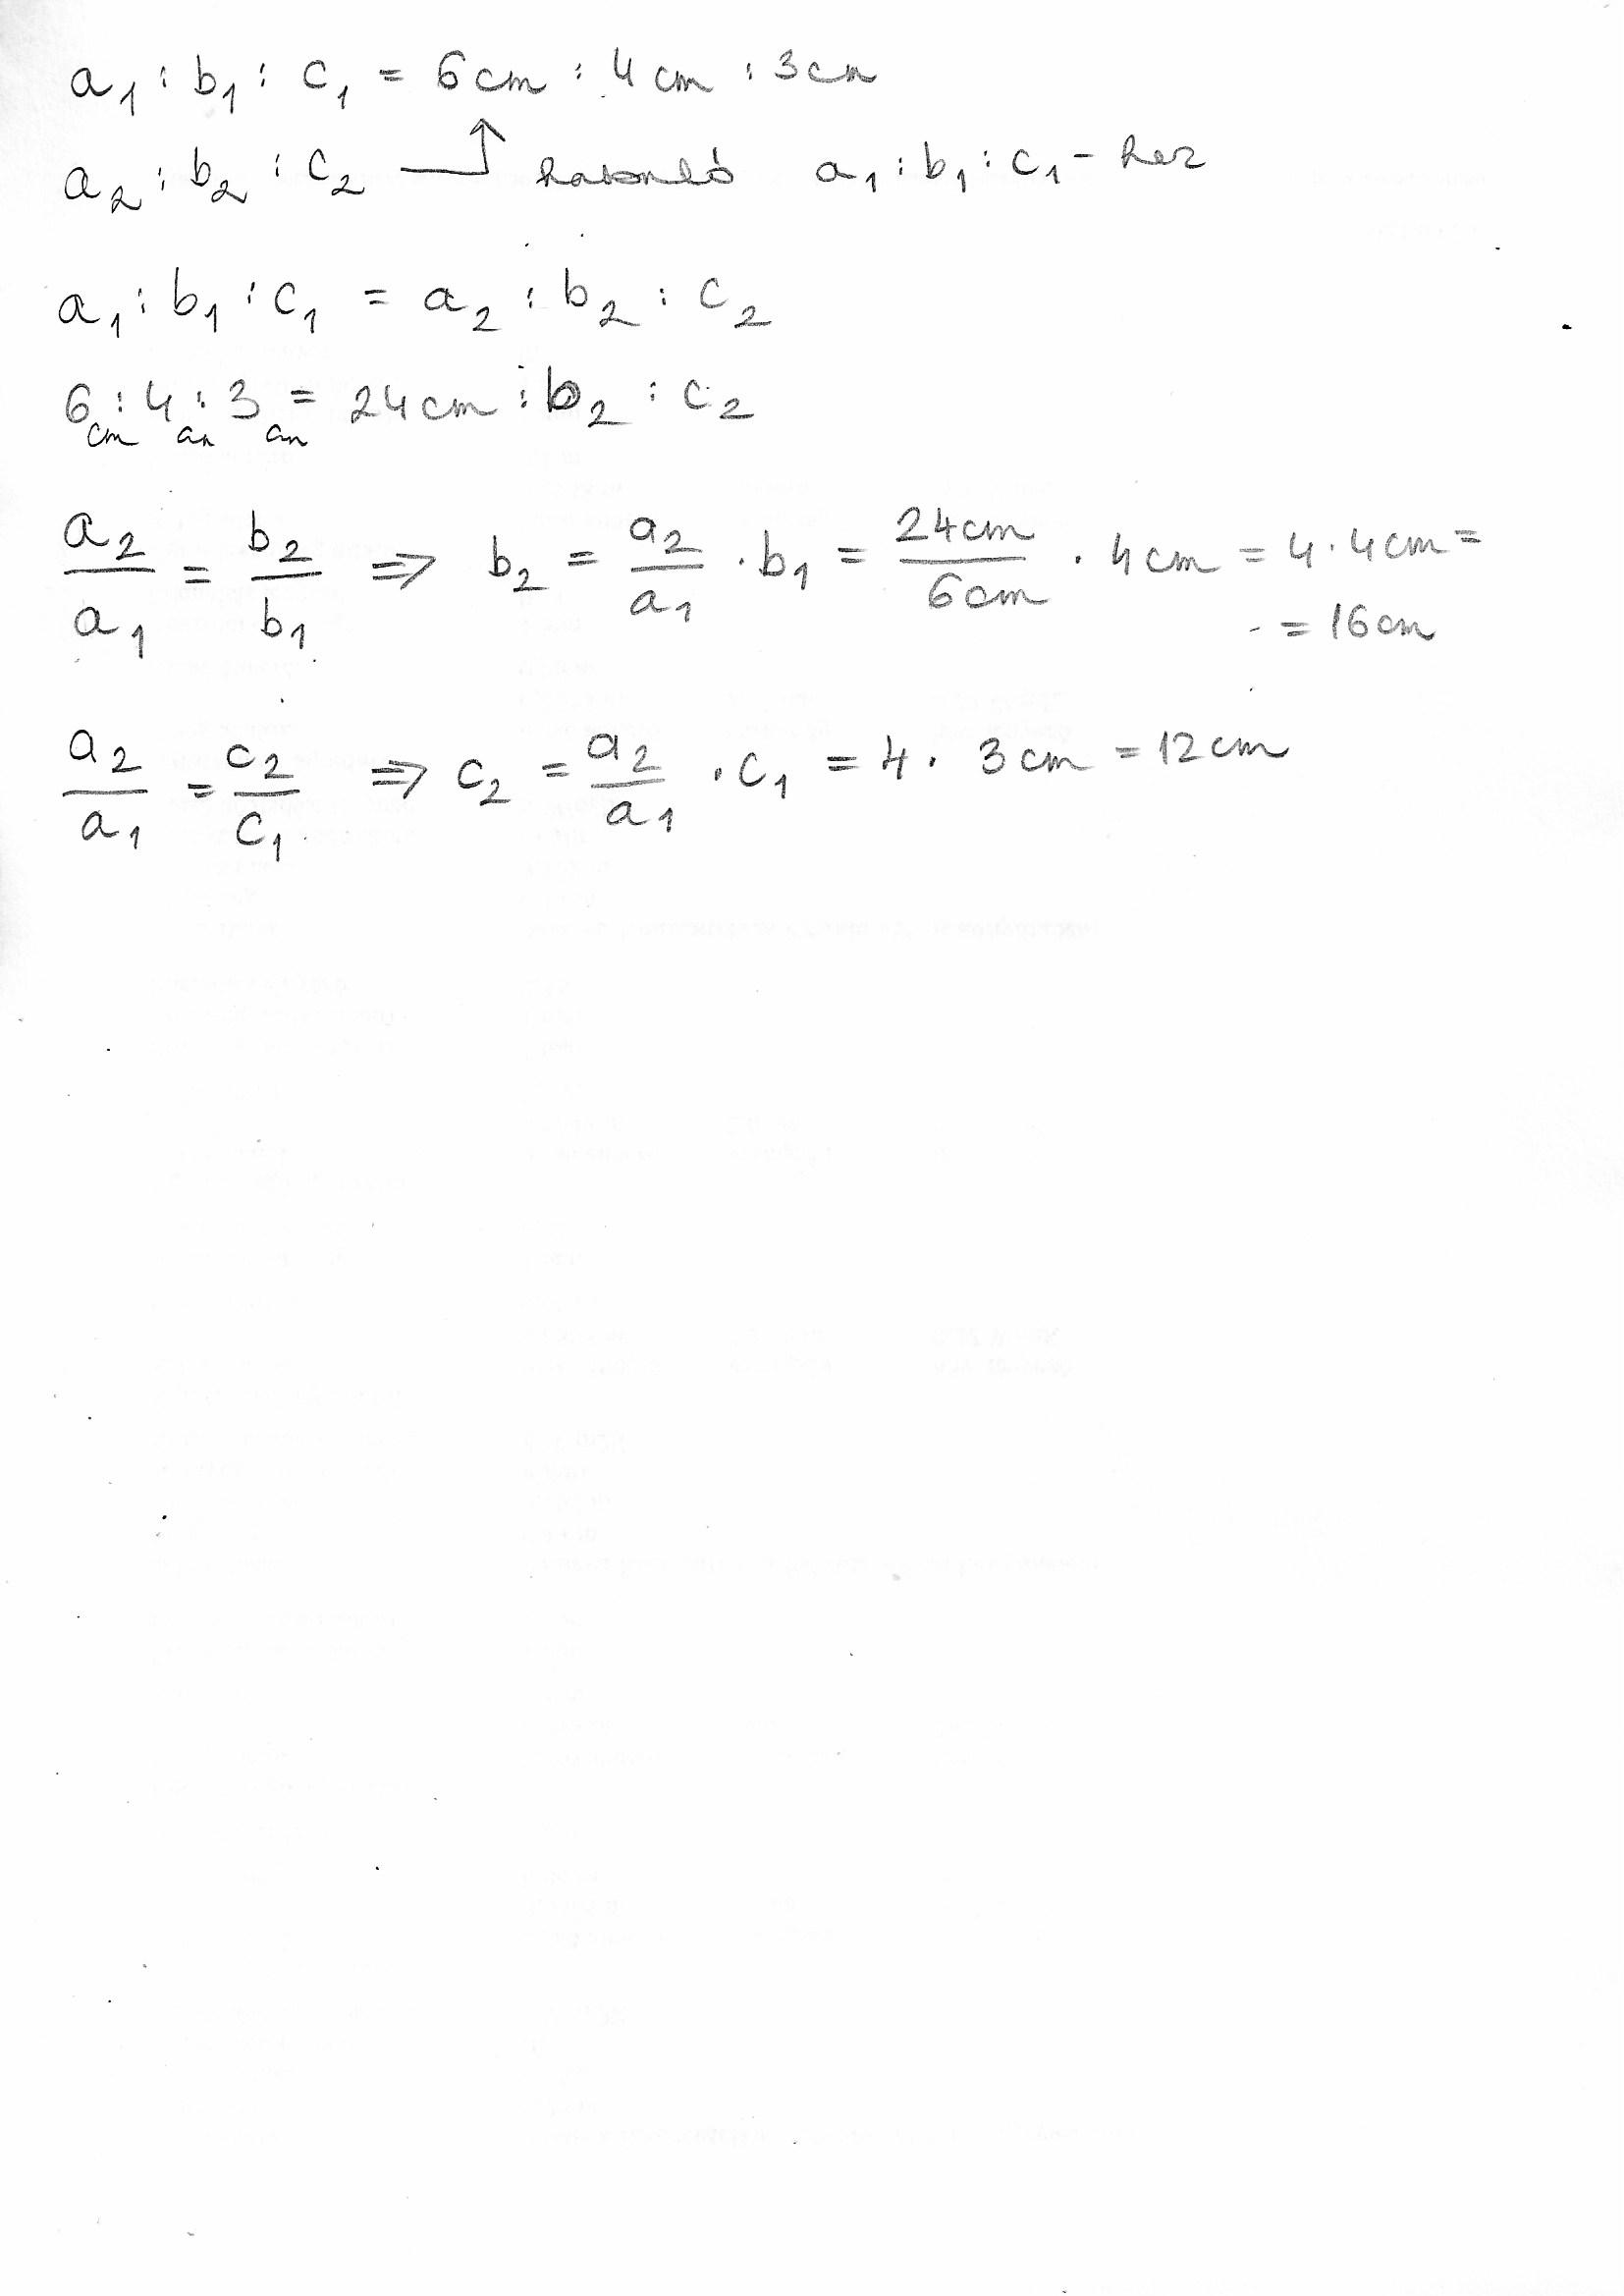 a₁ : b₁ : c₁ = 6cm : 4cm : 3cm
a₂ : b₂ : c₂ → hasonló a₁ : b₁ : c₁ - hez
a₁ : b₁ : c₁ = a₂ : b₂ : c₂
6cm : 4cm : 3cm = 24cm : b₂ : c₂
a₂/a₁ = b₂/b₁ ⇒ b₂ = a₂/a₁ · b₁ = 24cm/6cm · 4cm = 4 · 4cm =
= 16cm
a₂/a₁ = c₂/c₁ ⇒ c₂ = a₂/a₁ · c₁ = 4 · 3cm = 12cm